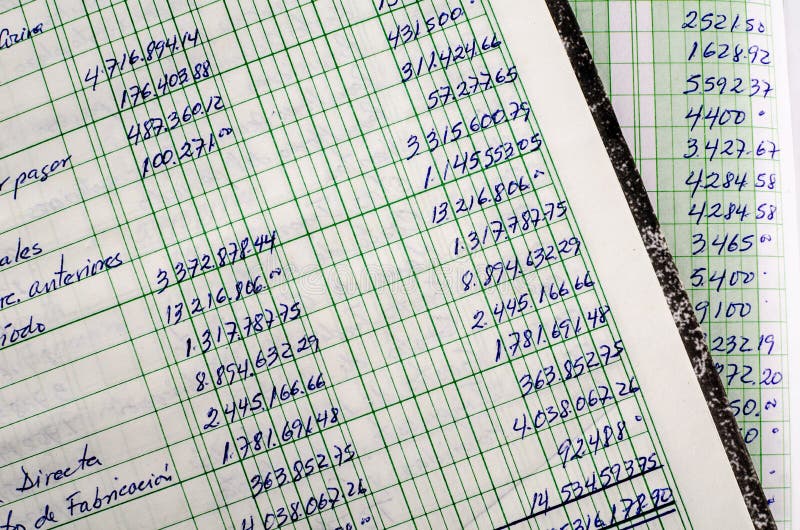 4.716.894.14
176.403.88
487.360.12
pagar 100.271.00
ales
c. anteriores 3372.878.44
íodo 13 216.806.00
1.317.787.75
8.894.632.29
2.445.166.66
Directa 1.781.691.48
to de Fabricación 363.852.75
4.038.067.26
431500.00
311.424.66
57.277.65
3315600.79
1.145553.05
13 216.806.00
1.317.787.75
8.894.632.29
2.445.166.66
1781.691.48
363.852.75
4.038.067.26
92.488.00
14 534593.75
316.178.92
2521.50
1628.92
559237
4400.00
3.427.67
428458
428458
3465.00
5.400.00
9100.00
232.19
72.20
50.00
0.00